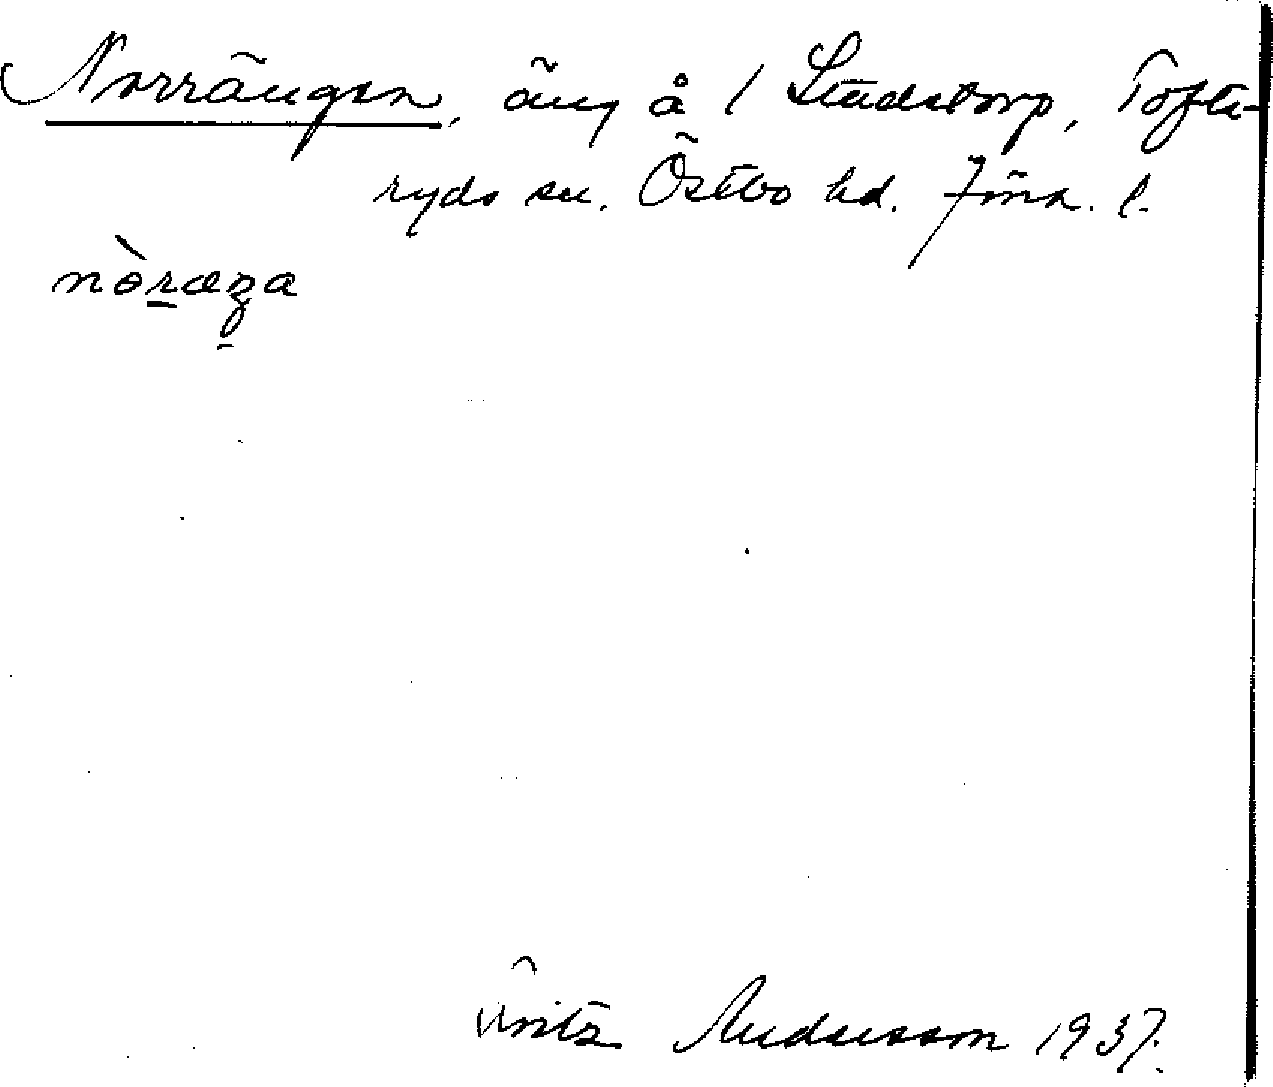 Norrängen, äng å 1 Studstorp, Tofte-
ryds sn. Östbo hd. Jönk. l.
nòræŋa
Fritz Andersson 1937.